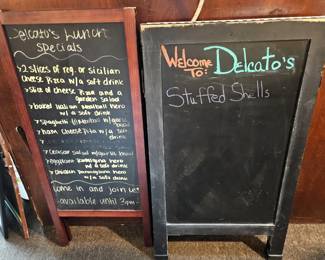 Delcato's Lunch
Specials
>2 slices of reg. or sicilian
cheese pizza w/a soft drink
>slice of cheese pizza and a
garden salad
>baked italian meatball hero
w/a soft drink
>spaghetti w/meatball w/garlic
bread
>ham cheese pizza w/a soft
drink
>ceasar salad w/garlic bread
>eggplant parmigiana hero
w/a soft drink
>chicken parmigiana hero
w/a soft drink
come in and join us!
-available until 3pm-
Welcome
To: Delcato's
Stuffed Shells